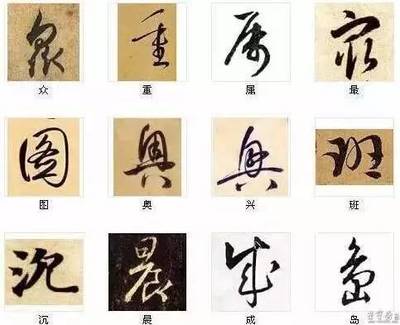 众 重 属 最
图 奥 兴 班
沉 晨 成 岛